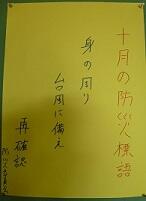 十月の防災標語
身の周り
台風に備え
再確認